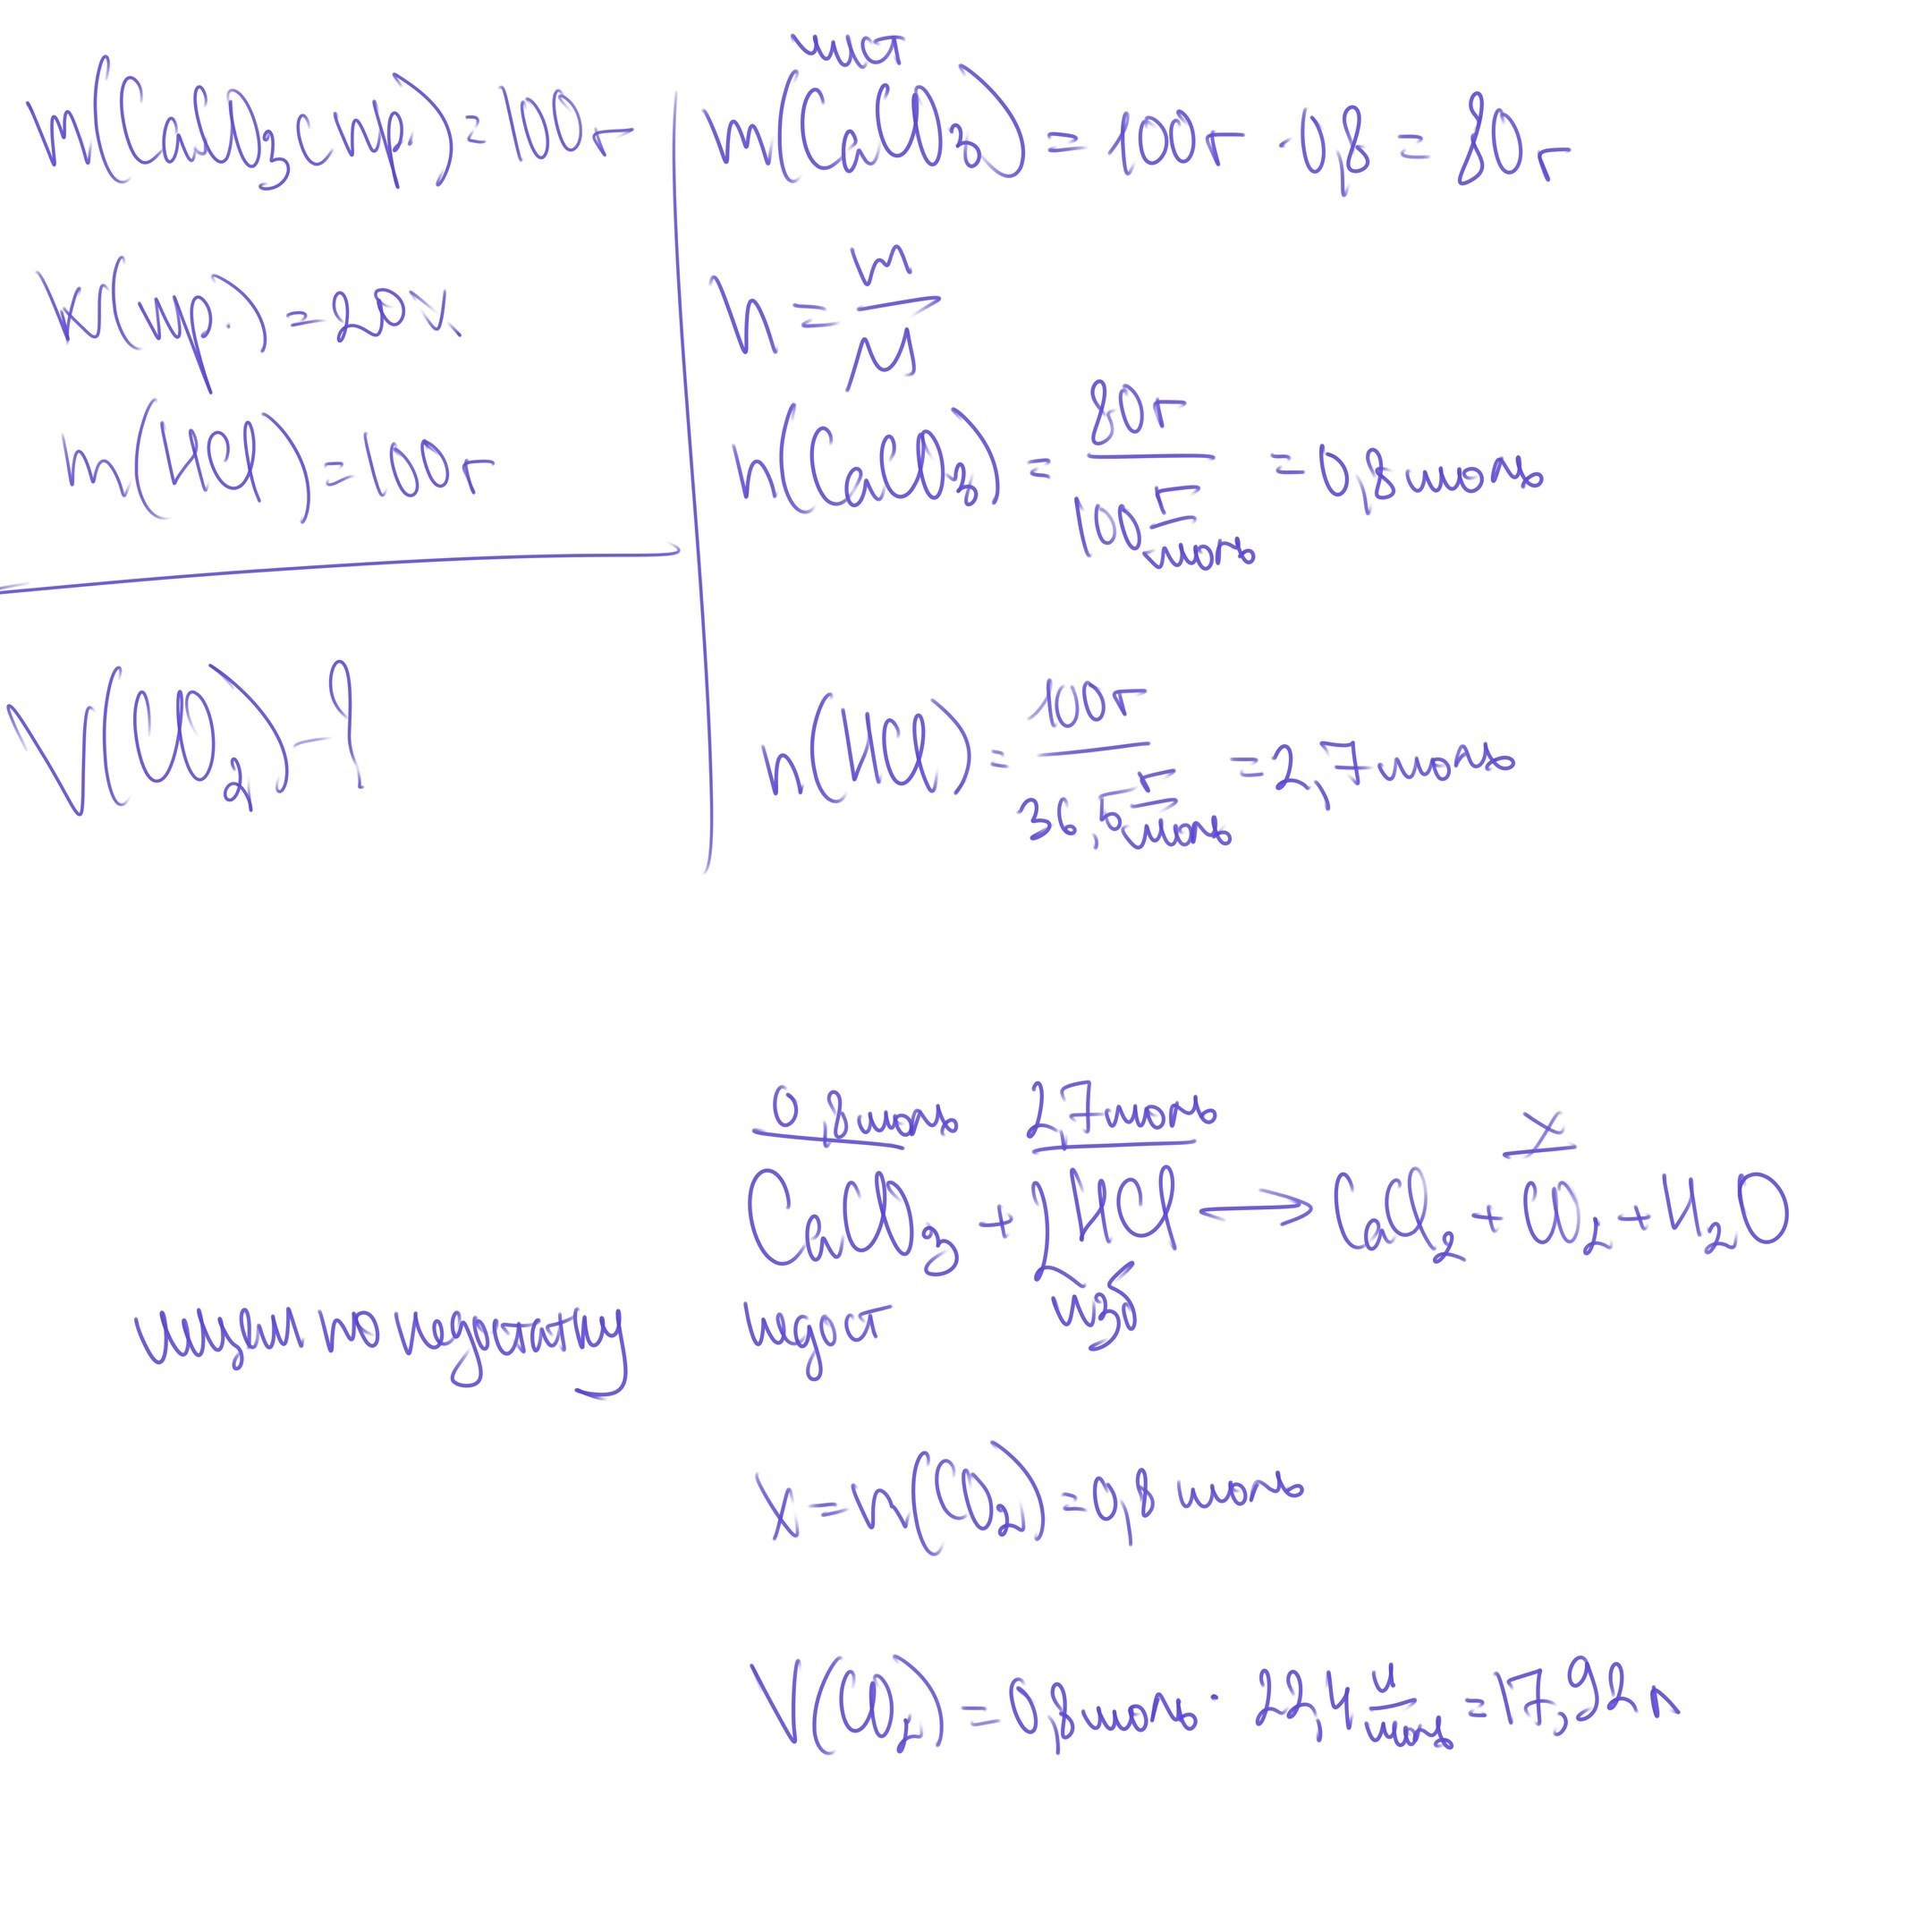 m(CaCO3 с пр.) = 100 г
W(пр.) = 20%
m(HCl) = 100 г
V(CO2) - ?
чист
m(CaCO3) = 100 г · 0,8 = 80 г
n = m/M
n(CaCO3) = 80 г / 100 г/моль = 0,8 моль
n(HCl) = 100 г / 36,5 г/моль = 2,7 моль
0,8 моль 2,7 моль x
CaCO3 + 2HCl → CaCl2 + CO2 + H2O
ищем по недостатку недост изб
x = n(CO2) = 0,8 моль
V(CO2) = 0,8 моль · 22,4 л/моль = 17,92 л